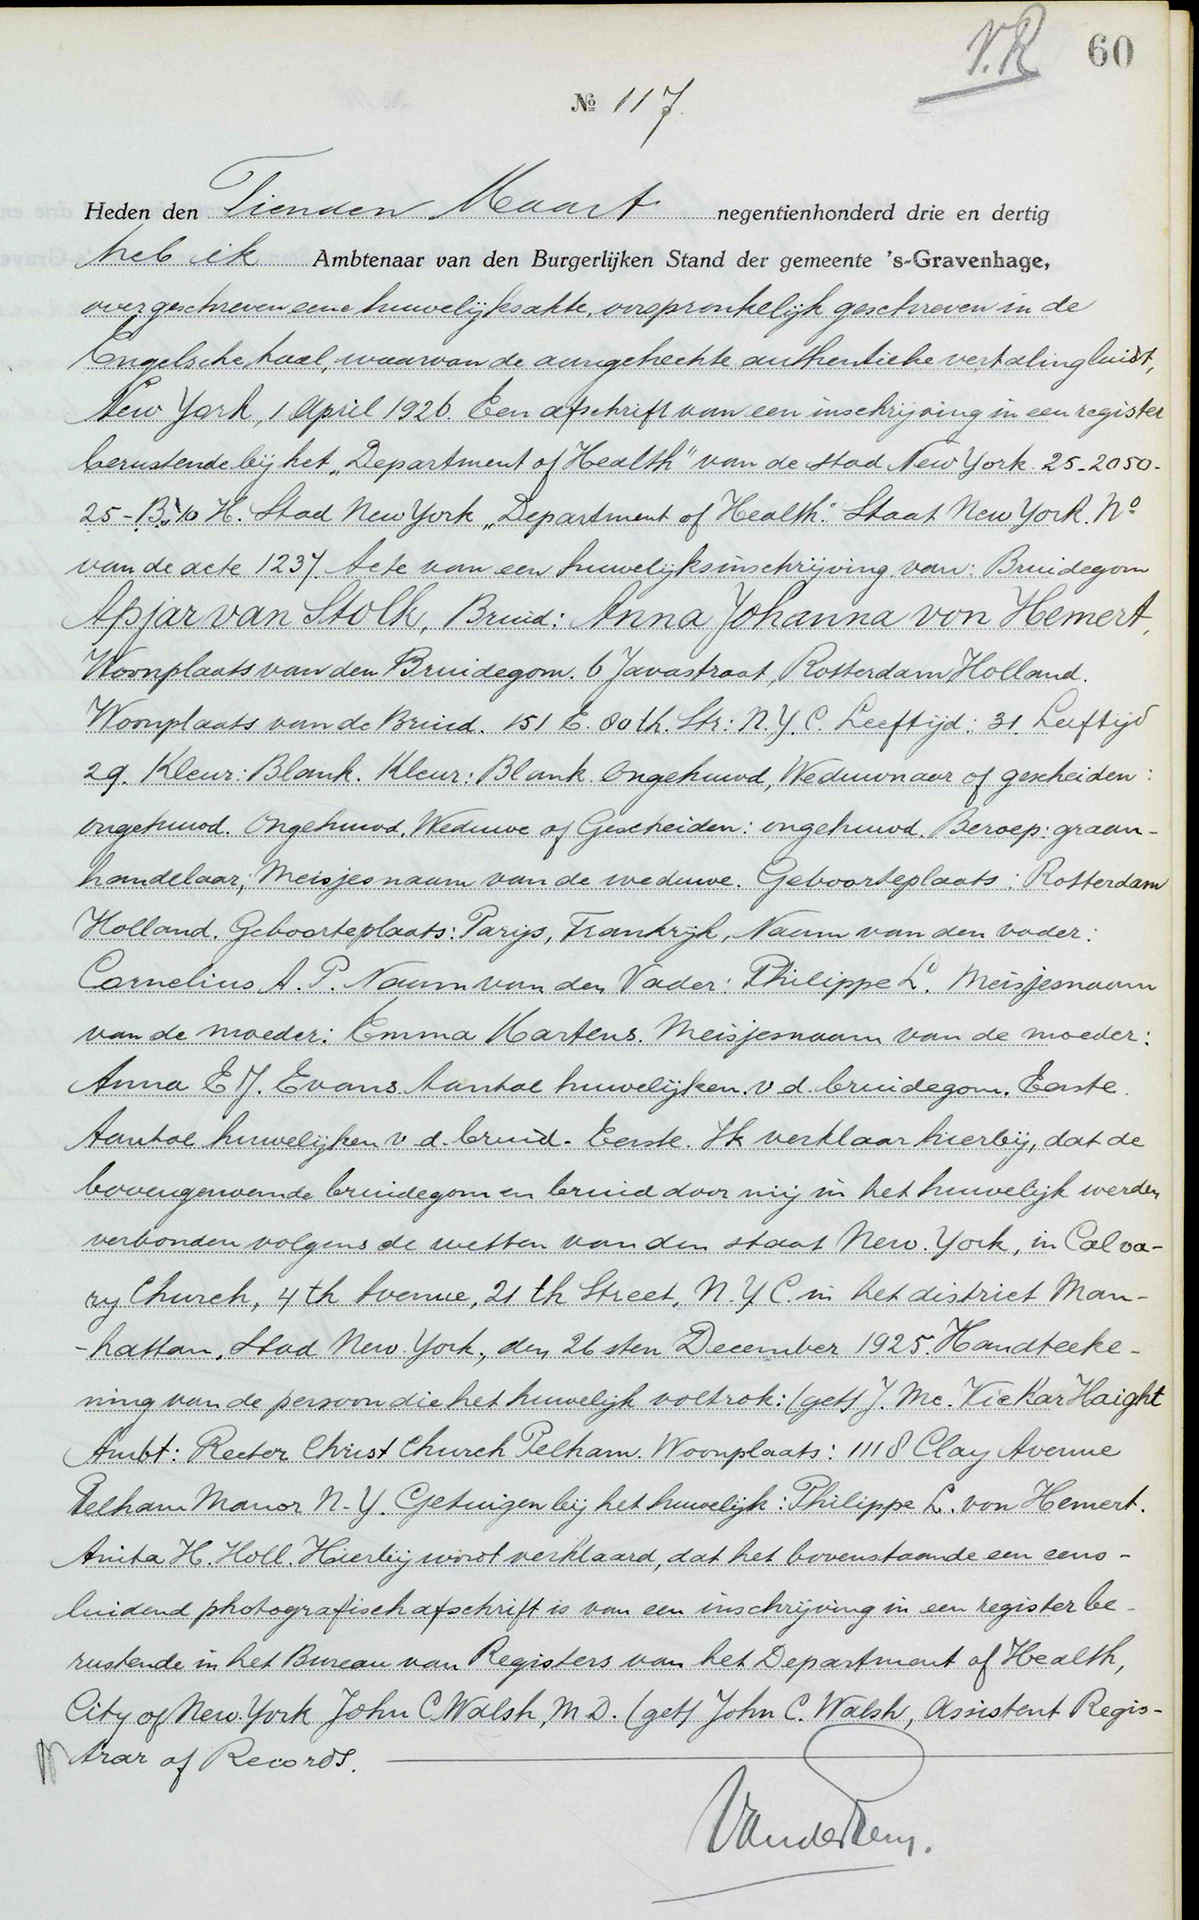 V.R 60
№ 117.
Heden den Tienden Maart negentienhonderd drie en dertig
heb ik Ambtenaar van den Burgerlijken Stand der gemeente 's-Gravenhage,
overgeschreven eene huwelijksakte, oorspronkelijk geschreven in de
Engelsche taal, waarvan de aangehechte authentieke vertaling luidt,
New York, 1 April 1926. Een afschrift van een inschrijving in een register
berustende bij het „Department of Health" van de stad New York. 25-2050-
25-B. H. Stad New York „Department of Health". Staat New York. No
van de acte 1237. Acte van een huwelijksinschrijving van: Bruidegom
Apjar van Stolk, Bruid: Anna Johanna von Hemert,
Woonplaats van den Bruidegom. 6 Javastraat, Rotterdam Holland.
Woonplaats van de Bruid. 151 E. 80 th. Str: N.Y.C. Leeftijd: 31. Leeftijd
29. Kleur: Blank. Kleur: Blank. Ongehuwd, Weduwnaar of gescheiden:
ongehuwd. Ongehuwd, Weduwe of Gescheiden: ongehuwd. Beroep: graan-
handelaar; Meisjesnaam van de weduwe. Geboorteplaats: Rotterdam
Holland. Geboorteplaats: Parijs, Frankrijk, Naam van den vader:
Cornelius A. P. Naam van den Vader: Philippe L. Meisjesnaam
van de moeder: Emma Martens. Meisjesnaam van de moeder:
Anna E J. Evans. Aantal huwelijken v. d. bruidegom. Eerste.
Aantal huwelijken v. d. bruid. Eerste. Ik verklaar hierbij, dat de
bovengenoemde bruidegom en bruid door mij in het huwelijk werden
verbonden volgens de wetten van den staat New. York, in Calva-
ry Church, 4 th Avenue, 21 th Street, N.Y C. in het district Man-
-hattan, Stad New. York, den 26sten December 1925. Handteeke-
ning van de persoon die het huwelijk voltrok: (get) J. Mc. Vickar Haight
Ambt: Recter Christ Church Pelham. Woonplaats: 1118 Clay Avenue
Pelham Manor N-Y. Getuigen bij het huwelijk: Philippe L. von Hemert.
Anita H. Holl. Hierbij wordt verklaard, dat het bovenstaande een eens-
luidend photografisch afschrift is van een inschrijving in een register be-
rustende in het Bureau van Registers van het Department of Health,
City of New. York John C Walsh, M D. (get) John C. Walsh, Assistent Regis-
trar of Records.